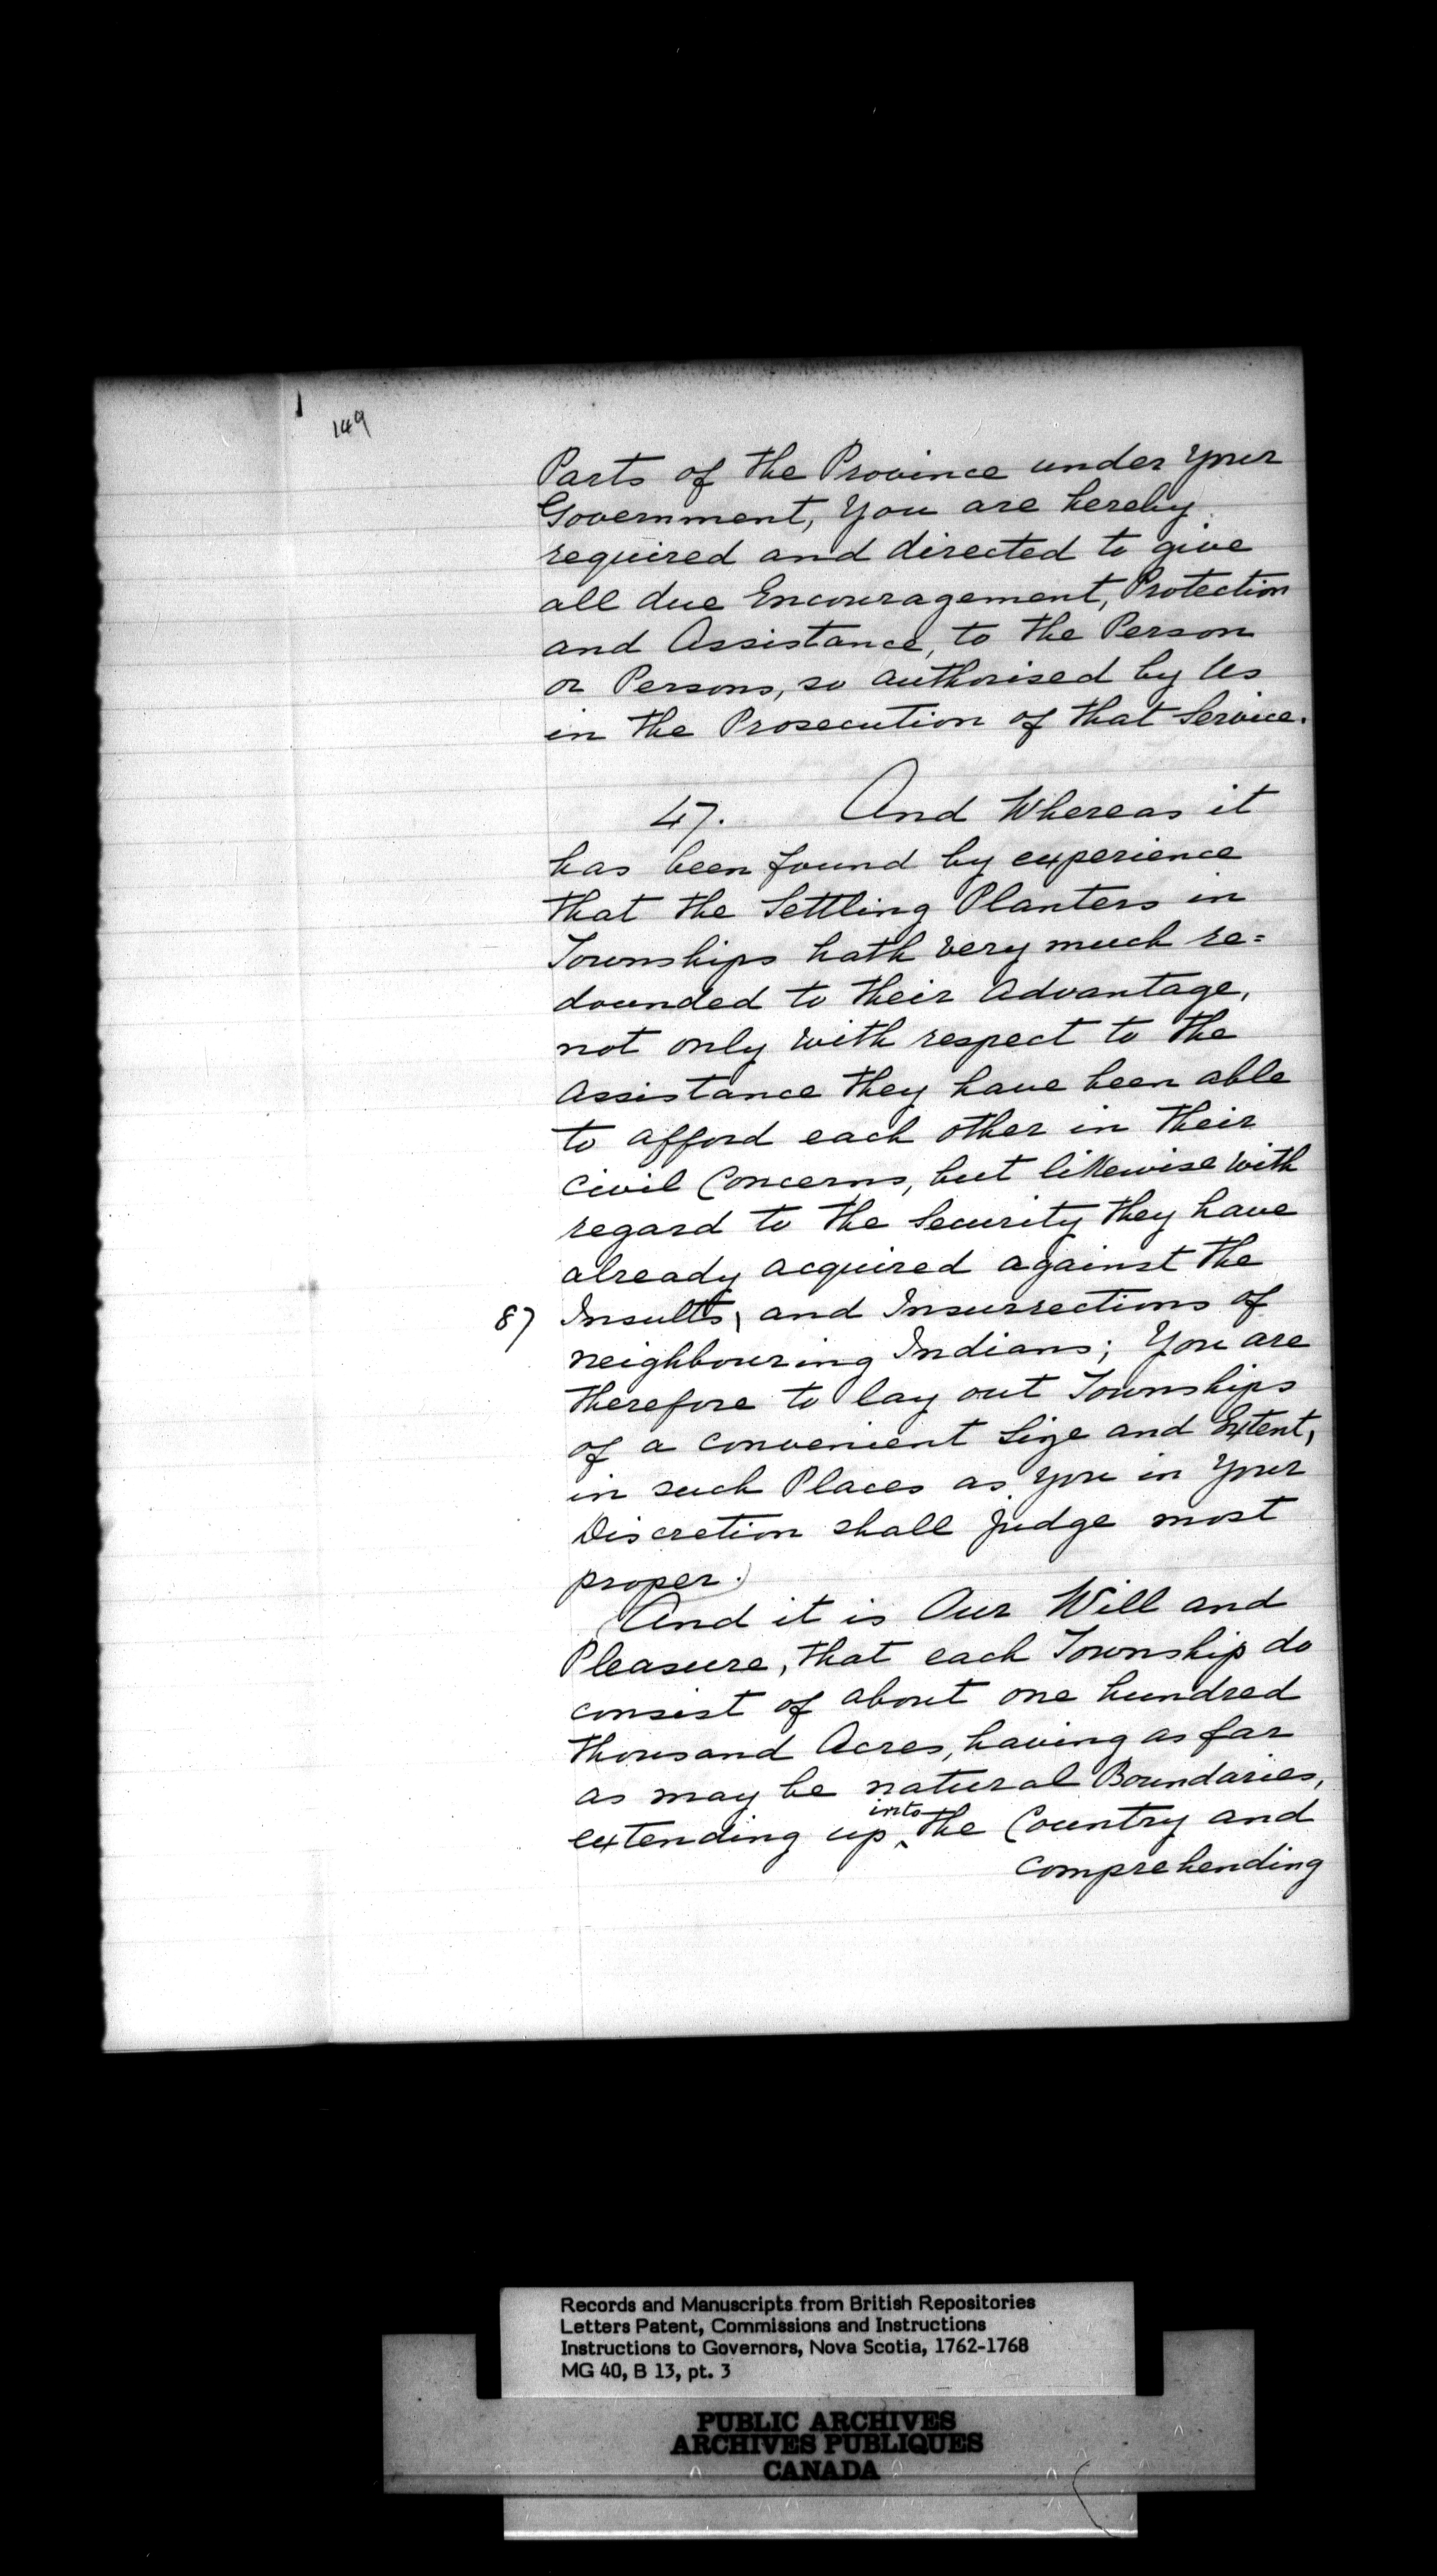 149
Parts of the Province under Your
Government, You are hereby
required and directed to give
all due Encouragement, Protection
and Assistance, to the Person
or Persons, so authorised by Us
in the Prosecution of that Service.
47. And Whereas it
has been found by experience
that the Settling Planters in
Townships hath very much re=
dounded to their Advantage,
not only with respect to the
Assistance they have been able
to afford each other in their
civil Concerns, but likewise with
regard to the Security they have
already acquired against the
87 Insults, and Insurrections of
neighbouring Indians; You are
therefore to lay out Townships
of a convenient Size and Extent,
in such Places as You in Your
Discretion shall judge most
proper.)
(And it is Our Will and
Pleasure, that each Township do
consist of about one hundred
thousand Acres, having as far
as may be natural Boundaries,
extending up into the Country and
comprehending
Records and Manuscripts from British Repositories
Letters Patent, Commissions and Instructions
Instructions to Governors, Nova Scotia, 1762-1768
MG 40, B 13, pt. 3
PUBLIC ARCHIVES
ARCHIVES PUBLIQUES
CANADA